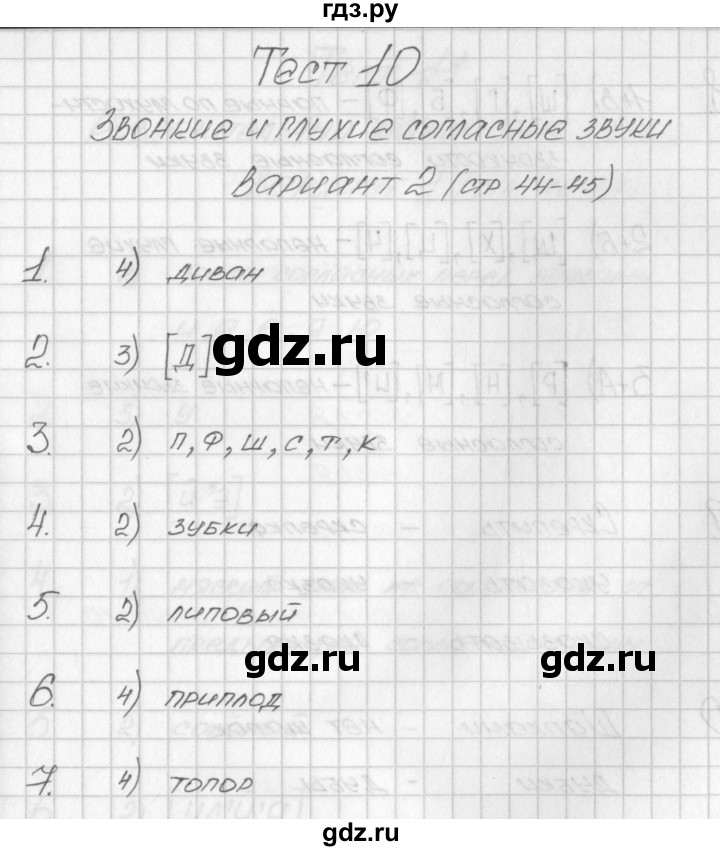 гдз.ру
Тест 10
Звонкие и глухие согласные звуки
вариант 2 (стр 44-45)
1. 4) диван
2. 3) [Д]
gdz.ru
3. 2) п, ф, ш, с, т, к
4. 2) зубки
5. 2) липовый
gdz.ru gdz.ru
6. 4) приплод
7. 4) топор
gdz.ru